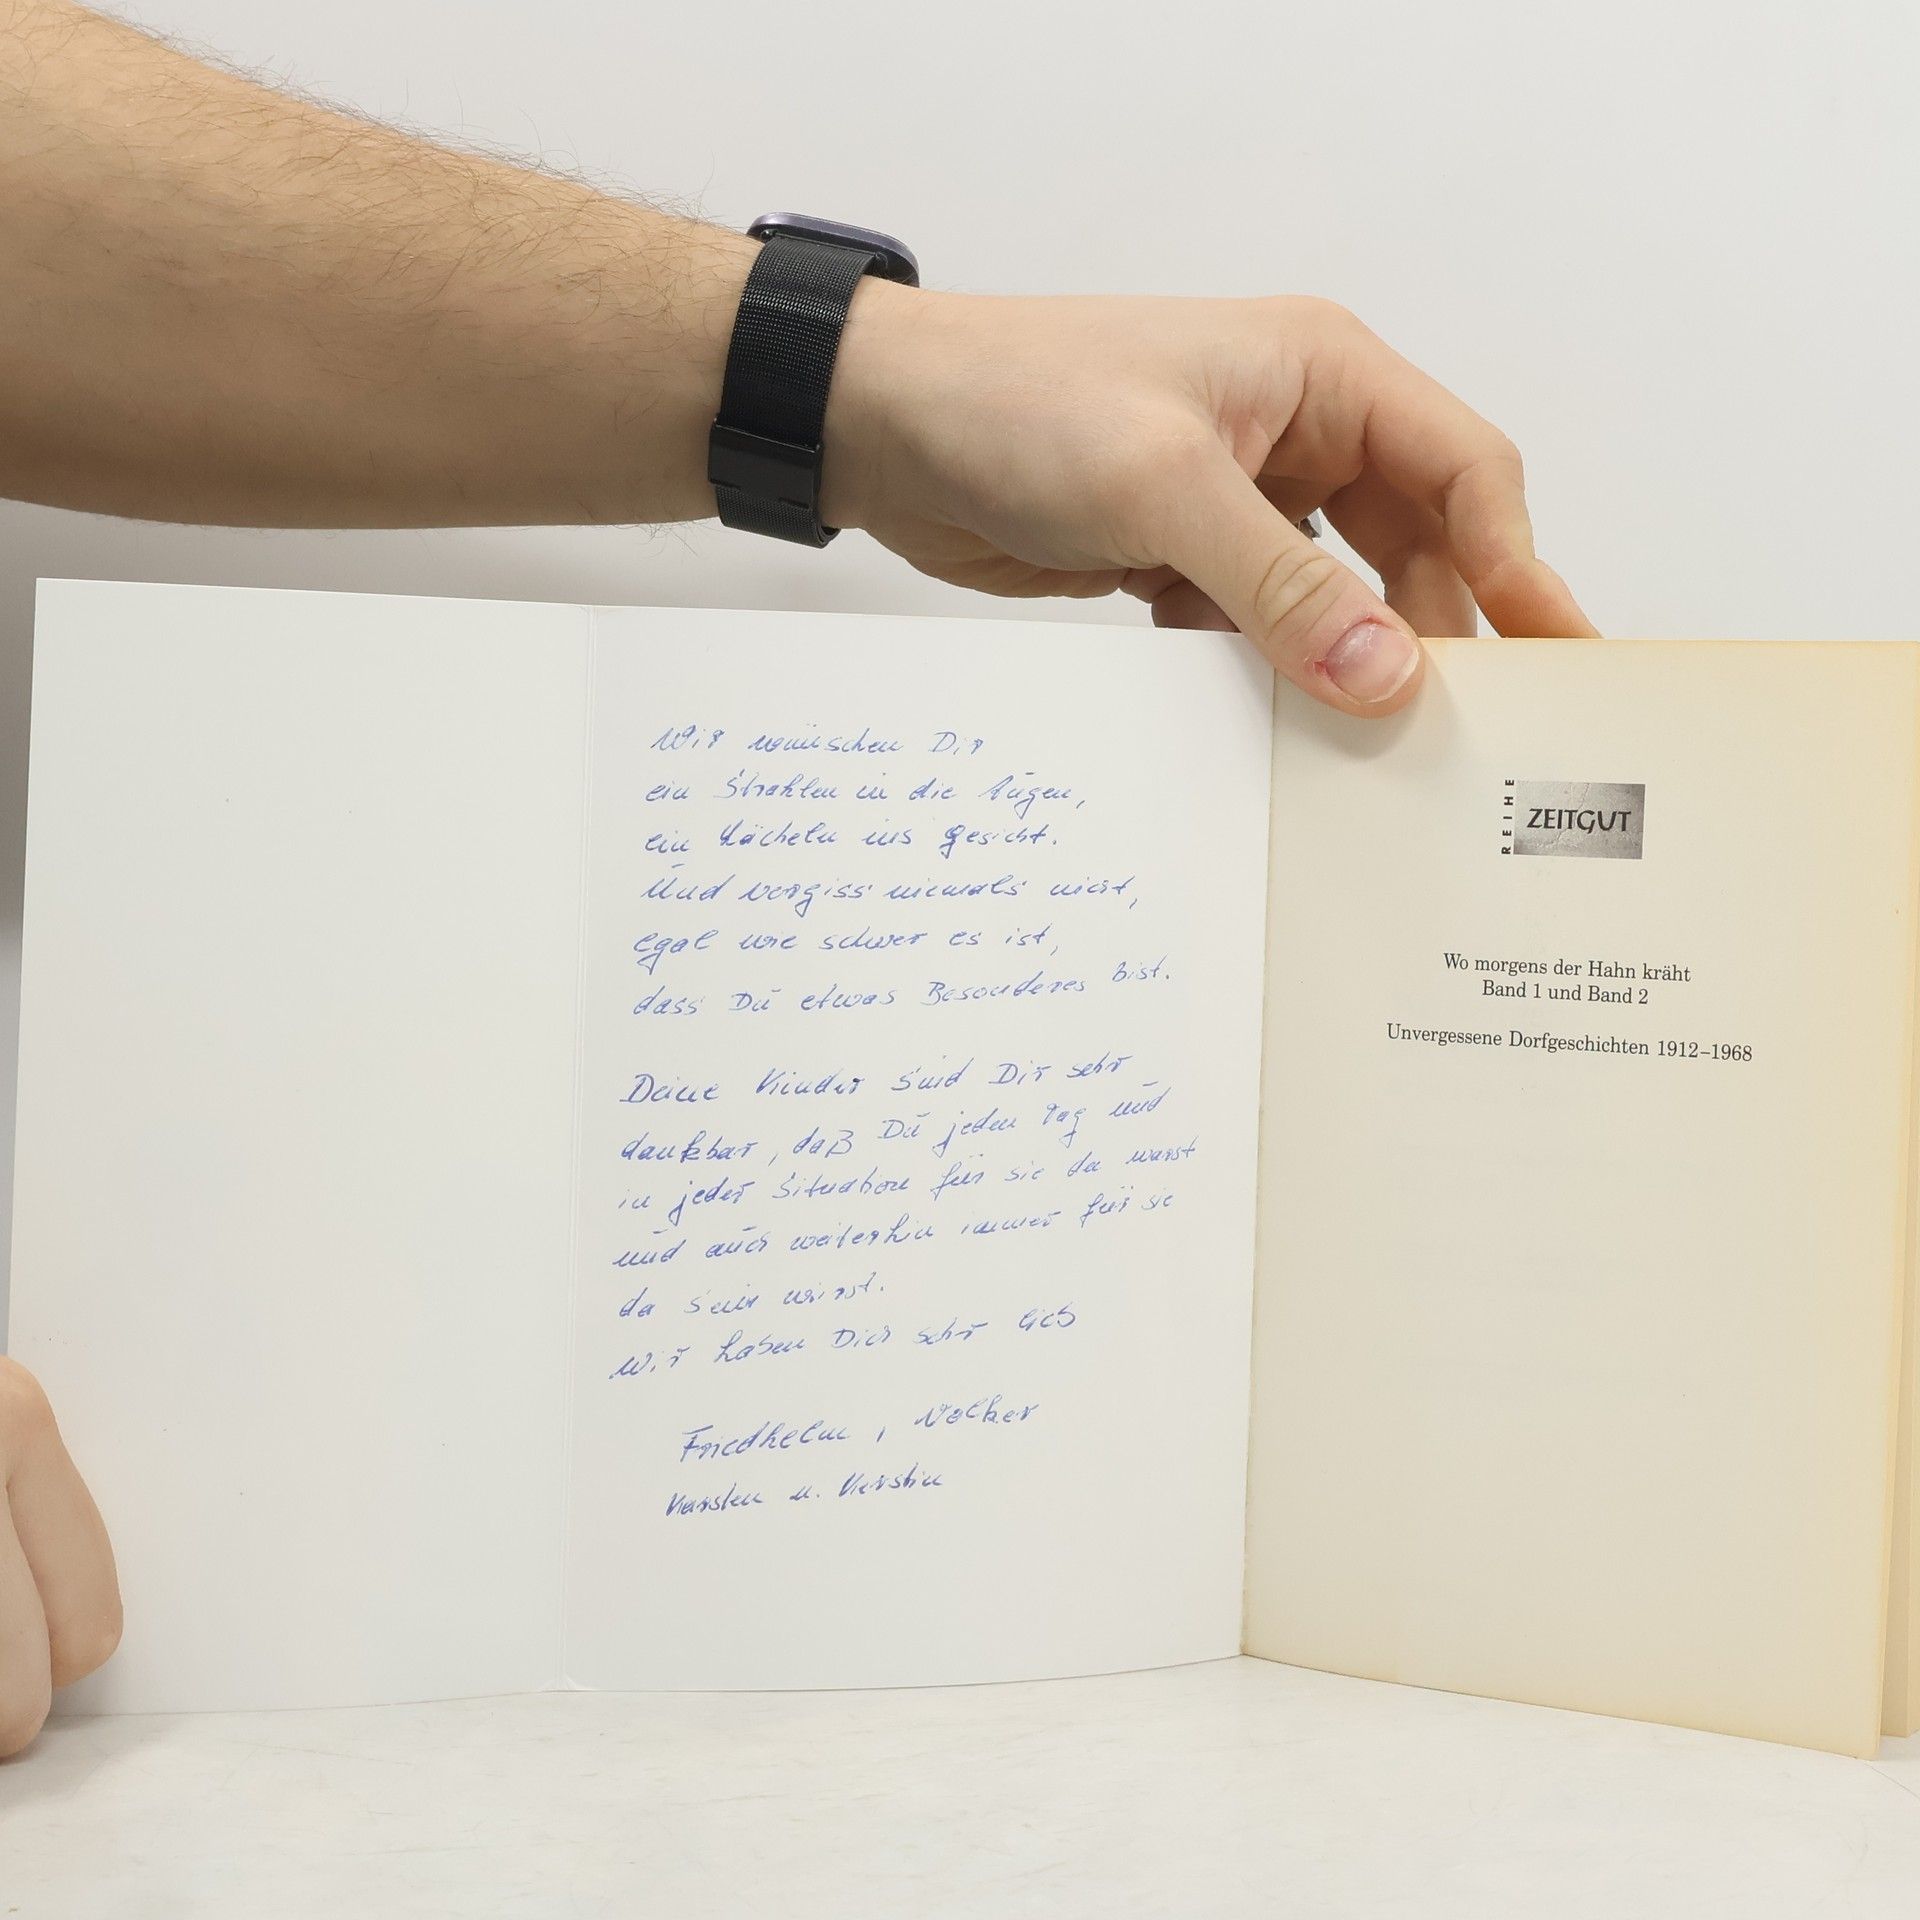 Wir wünschen Dir
ein Strahlen in die Augen,
ein Lächeln ins Gesicht.
Und vergiss niemals nicht,
egal wie schwer es ist,
dass Du etwas Besonderes bist.
Deine Kinder sind Dir sehr
dankbar, daß Du jeden Tag und
in jeder Situation für sie da warst
und auch weiterhin immer für sie
da sein wirst.
Wir haben Dich sehr lieb
Friedhelm, Volker
Karsten u. Kerstin
REIHE
ZEITGUT
Wo morgens der Hahn kräht
Band 1 und Band 2
Unvergessene Dorfgeschichten 1912–1968